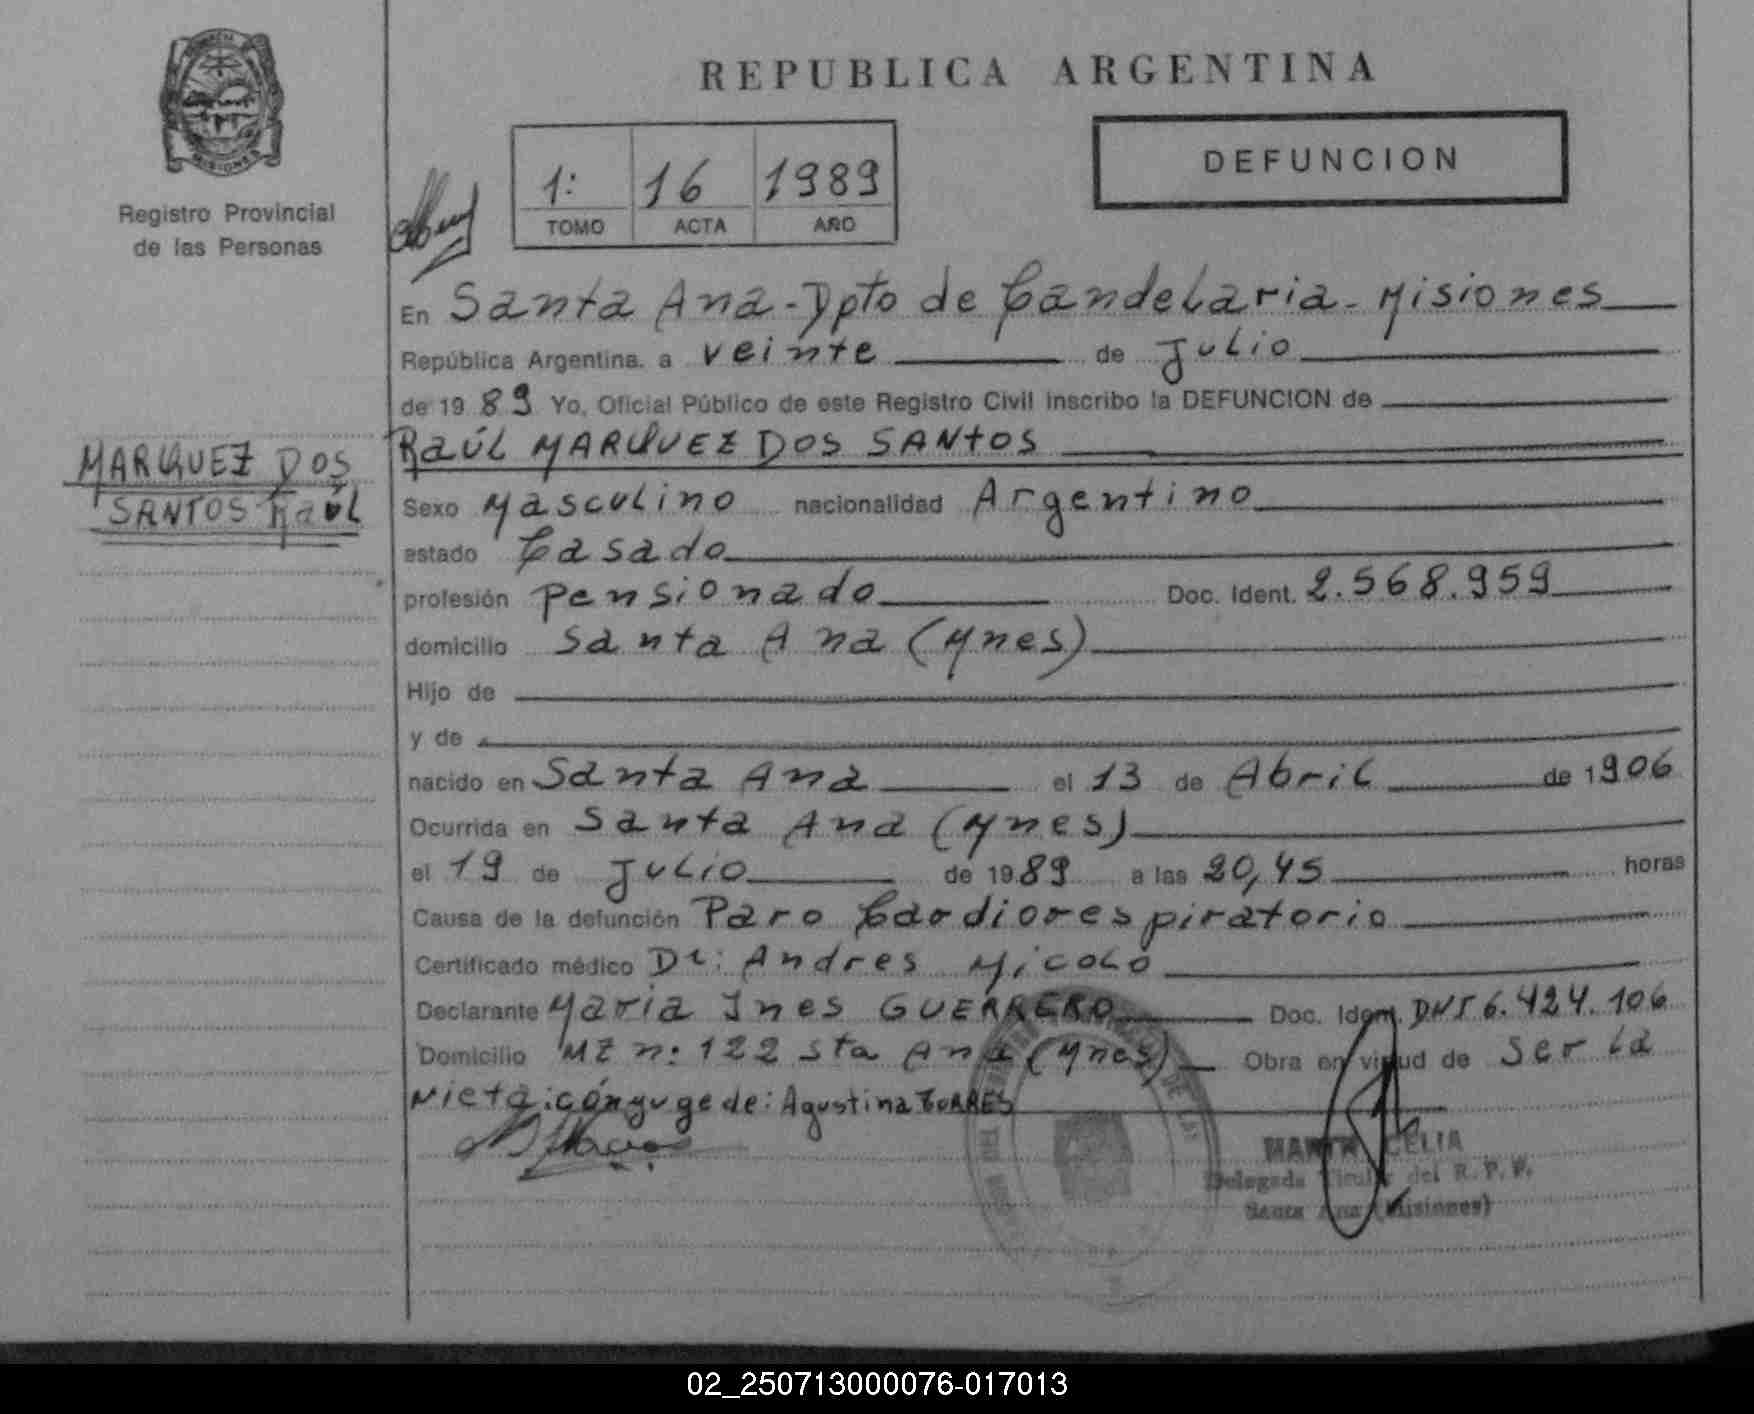 REPUBLICA ARGENTINA
MISIONES
Registro Provincial
de las Personas
1: 16 1989
TOMO ACTA AÑO
DEFUNCION
En Santa Ana - Dpto de Candelaria - Misiones
República Argentina, a veinte de Julio
de 1989 Yo, Oficial Público de este Registro Civil inscribo la DEFUNCION de
RaÚL MARQUEZ DOS SANTOS
MARQUEZ DOS
SANTOS RaÚL
Sexo Masculino nacionalidad Argentino
estado Casado
profesión Pensionado Doc. Ident. 2.568.959
domicilio Santa Ana (Mnes)
Hijo de
y de
nacido en Santa Ana el 13 de Abril de 1906
Ocurrida en Santa Ana (Mnes)
el 19 de Julio de 1989 a las 20,45 horas
Causa de la defunción Paro Cardiorespiratorio
Certificado médico Dr: Andres Micoló
Declarante Maria Ines GUERRERO Doc. Ident. DNI 6.424.106
Domicilio MZ n: 122 Sta Ana (Mnes) Obra en virtud de Ser la
Nieta: cónyuge de: Agustina TORRES
CELIA
Delegada Titular del R. P. P.
Santa Ana (Misiones)
02_250713000076-017013